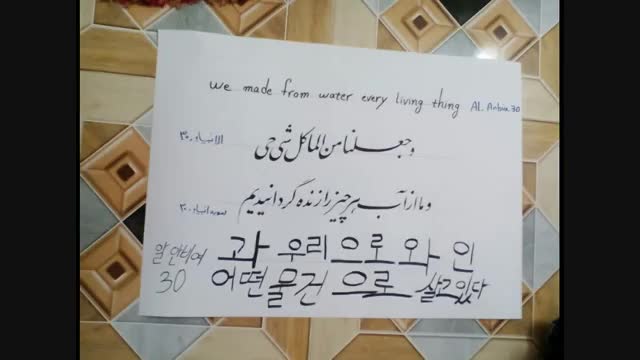 we made from water every living thing AL. Anbia. 30
و جعلنا من الما کل شی حی الانبیاء ۳۰
و ما از آب هر چیز را زنده گردانیدیم سوره انبیاء ۳۰
알 안비여 과 우리 으로 와 인
30 어떤 물건 으로 살고있다